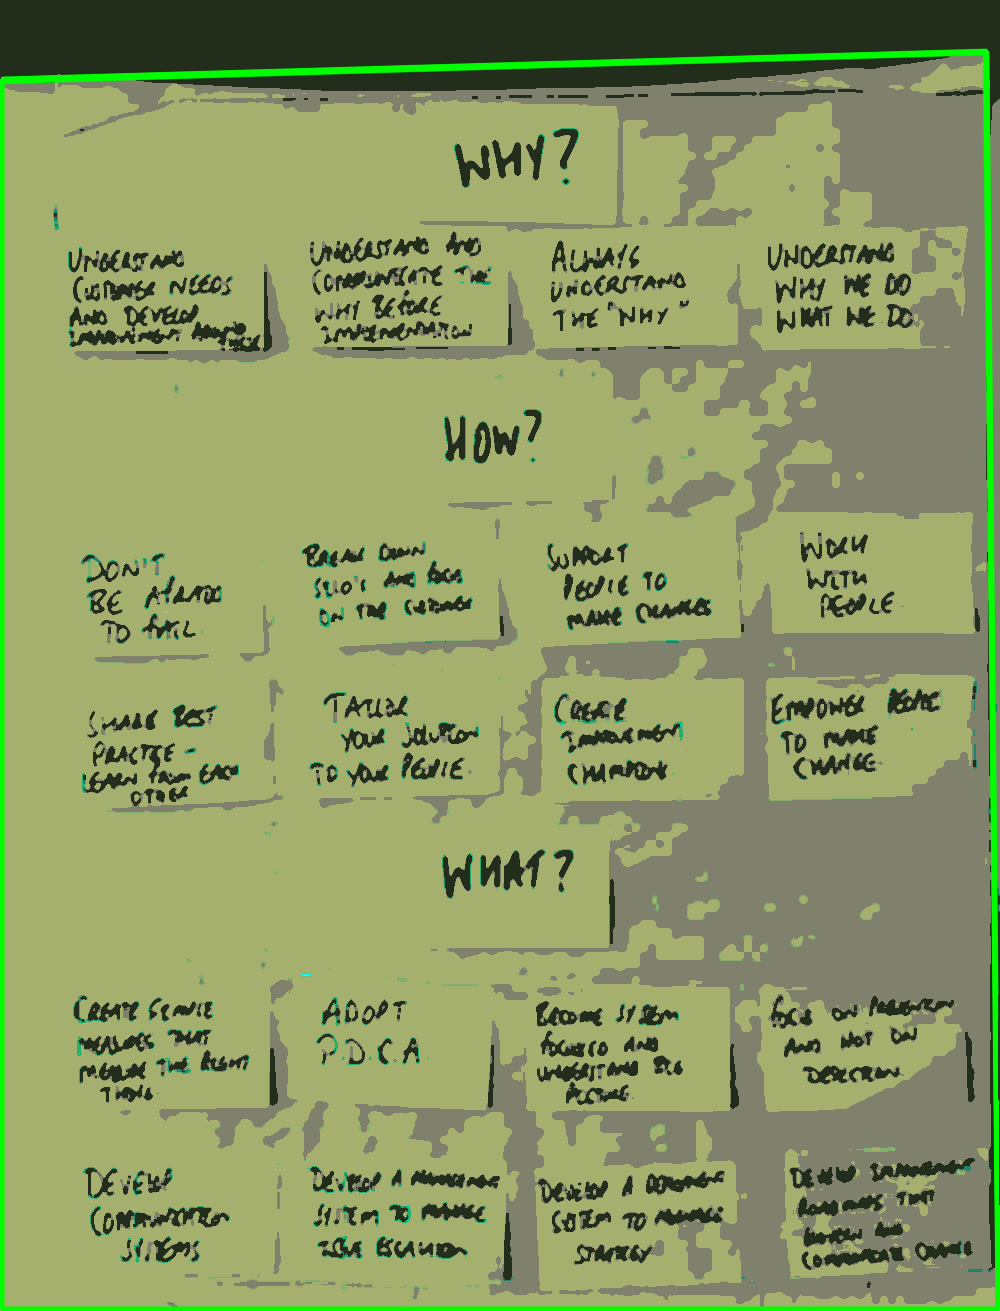 WHY?
UNDERSTAND
CUSTOMER NEEDS
AND DEVELOP
IMPROVEMENT AROUND
THESE
UNDERSTAND AND
COMMUNICATE THE
WHY BEFORE
IMPLEMENTATION
ALWAYS
UNDERSTAND
THE "WHY"
UNDERSTAND
WHY WE DO
WHAT WE DO
HOW?
DON'T
BE AFRAID
TO FAIL
BREAK DOWN
SILO'S AND FOCUS
ON THE CUSTOMER
SUPPORT
PEOPLE TO
MAKE CHANGES
WORK
WITH
PEOPLE
SHARE BEST
PRACTICE -
LEARN FROM EACH
OTHER
TAILOR
YOUR SOLUTION
TO YOUR PEOPLE
CREATE
IMPROVEMENT
CHAMPIONS
EMPOWER PEOPLE
TO MAKE
CHANGE
WHAT?
CREATE SERVICE
MEASURES THAT
MEASURE THE RIGHT
THING
ADOPT
P.D.C.A
BECOME SYSTEM
FOCUSED AND
UNDERSTAND BIG
PICTURE
FOCUS ON PREVENTION
AND NOT ON
DETECTION
DEVELOP
COMMUNICATION
SYSTEMS
DEVELOP A MANAGEMENT
SYSTEM TO MANAGE
ISSUE ESCALATION
DEVELOP A DEPLOYMENT
SYSTEM TO MANAGE
STRATEGY
DEVELOP IMPROVEMENT
ROADMAPS THAT
AND
COMMUNICATE CHANGE